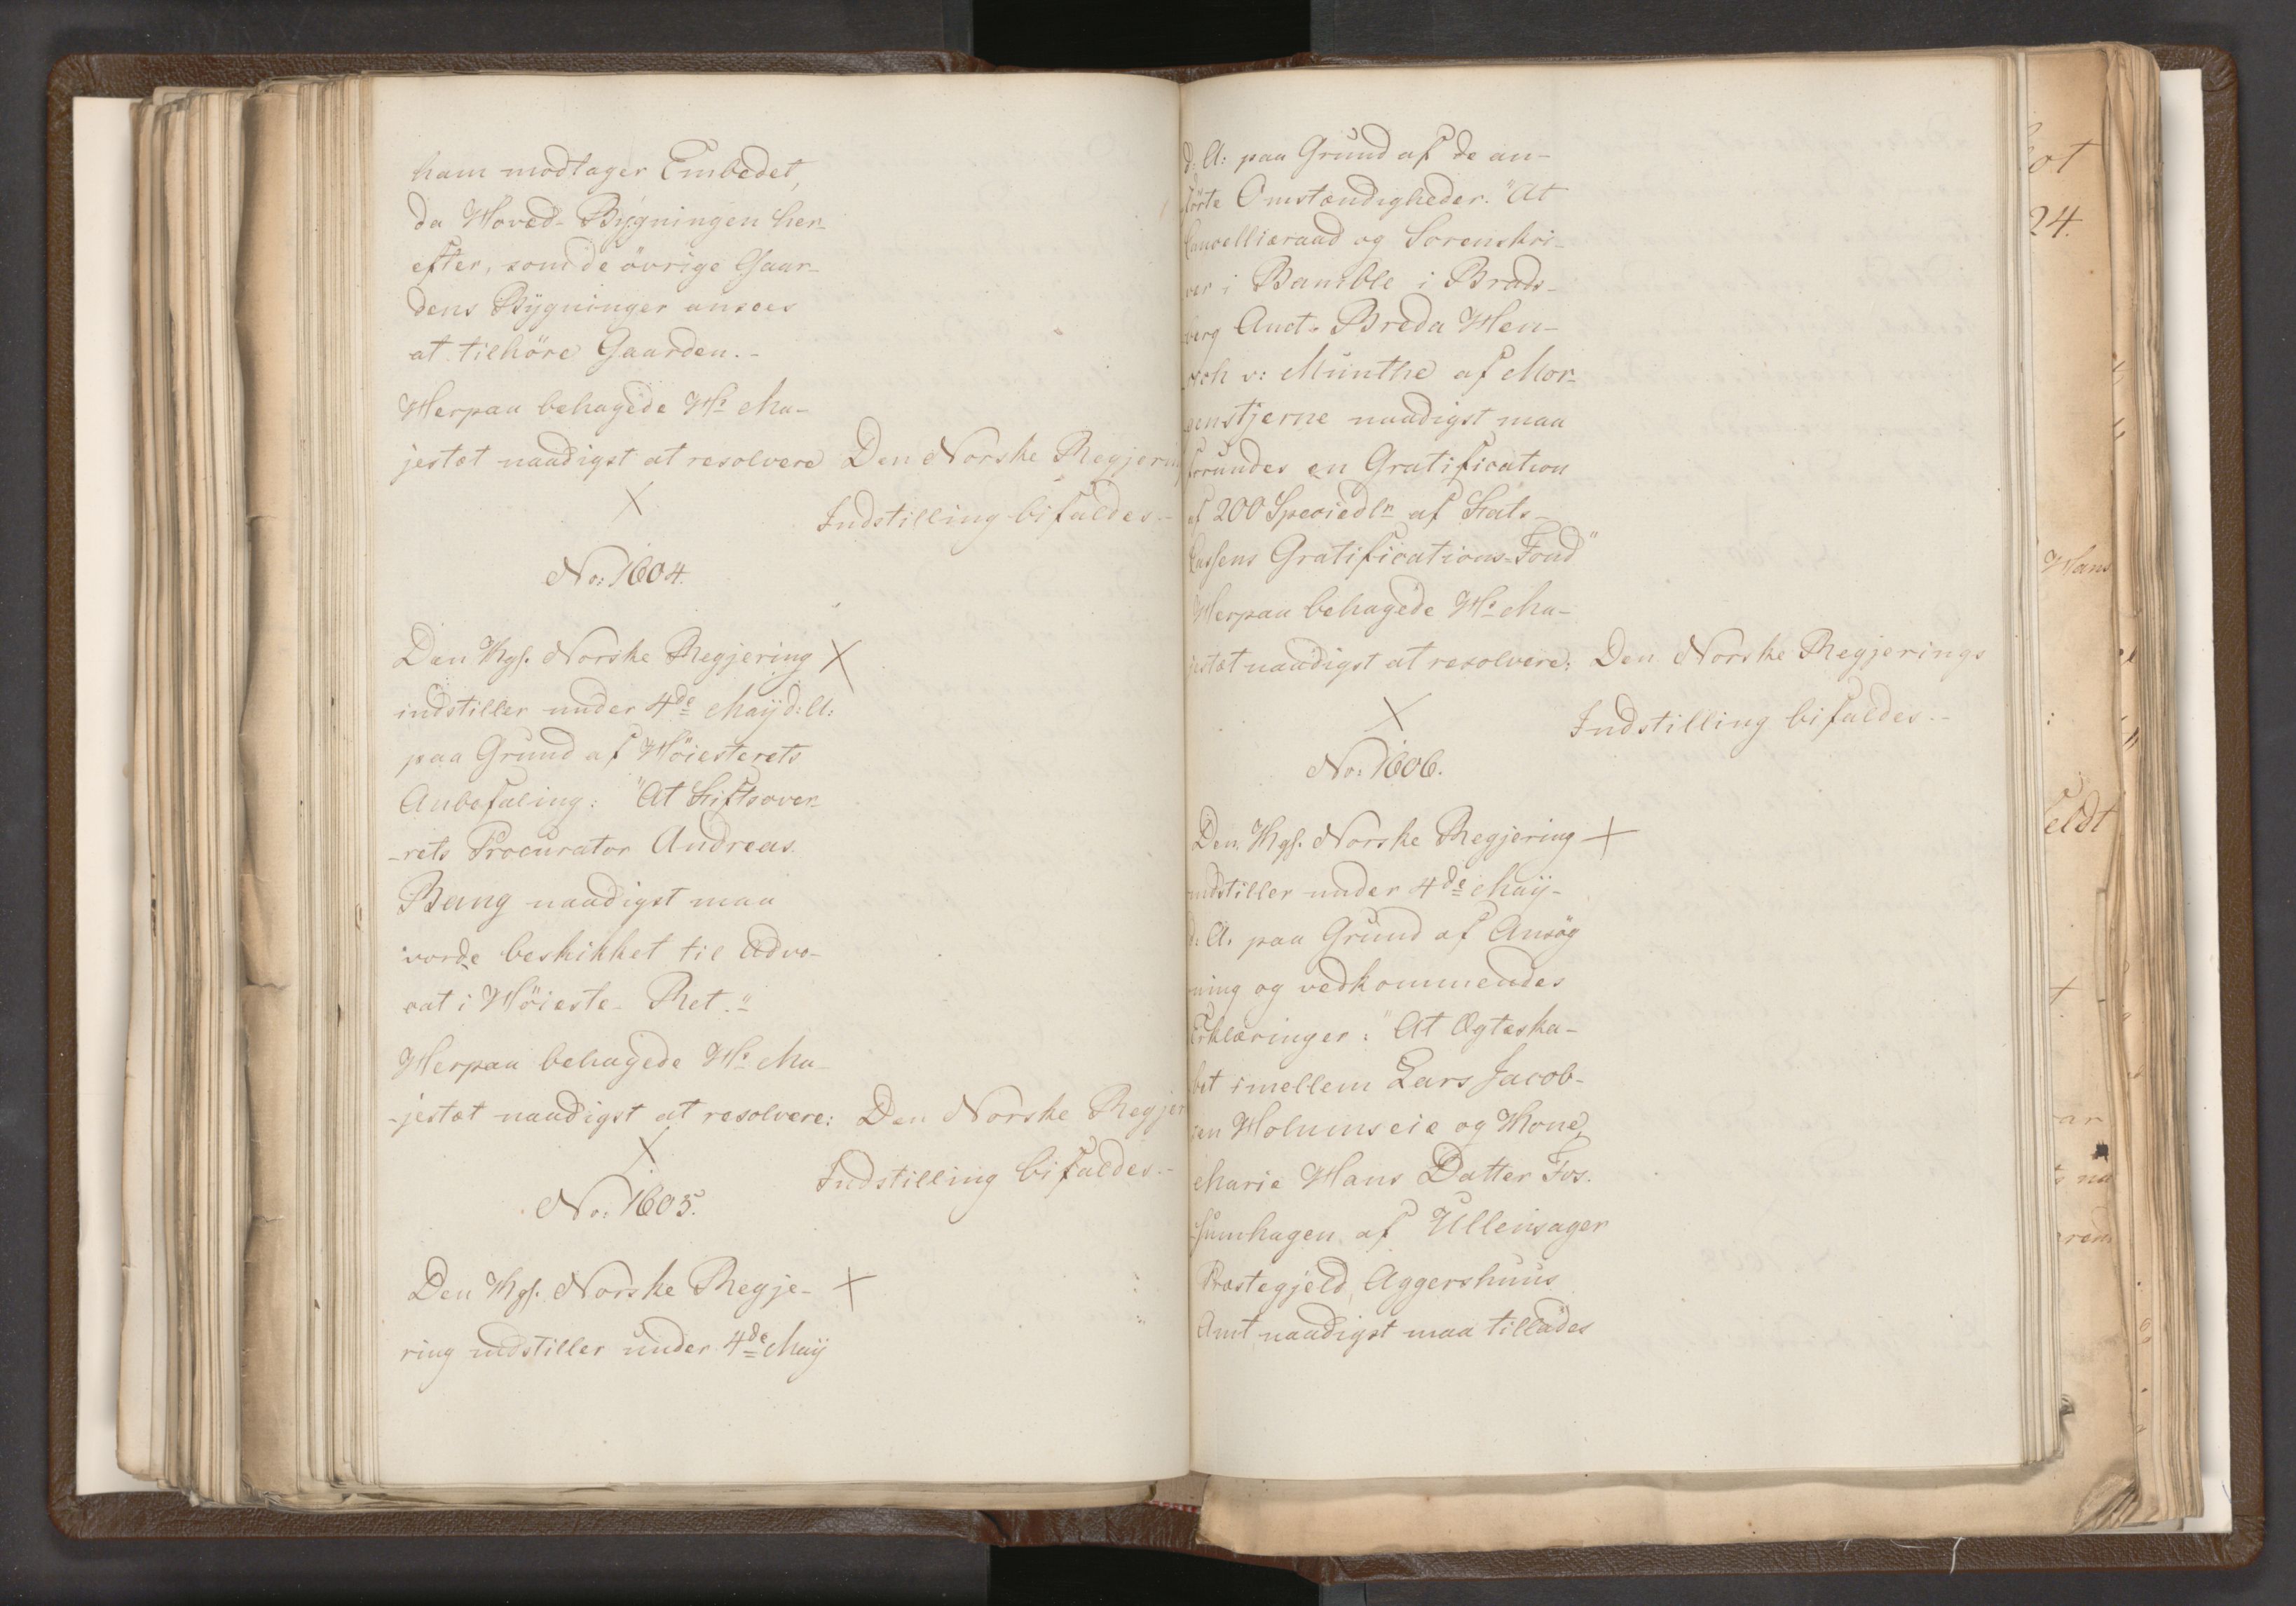 ham modtager Embedet,
da Hoved-Bygningen her-
efter, som de övrige Gaar-
dens Bÿgninger ansees
at tilhöre Gaarden.-
Herpaa behagede Hs Ma-
jestæt naadigst at resolvere Den Norske Regjering
Indstilling bifaldes.-
No: 1604.
Den Kgl. Norske Regjering
indstiller under 4de Maÿ d: A:
paa Grund af Höiesterets
Anbefaling: "At Stiftsover-
-rets Procurator Andreas
Bang naadigst maa
vorde beskikket til Advo-
cat i Höieste-Ret."
Herpaa behagede Hs Ma-
-jestæt naadigst at resolvere: Den Norske Regjer
Indstilling bifaldes.-
No: 1605.
Den Kgl. Norske Regje-
ring indstiller under 4de Maÿ
d: A: paa Grund af de an-
förte Omstændigheder: "At
Cancelliæraad og Sorenskri-
ver i Bamble i Brads-
berg Amt, Breda Hen-
rich v: Munthe af Mor-
genstjerne naadigst maa
forundes en Gratification
af 200 Speciedlr af Stats-
Cassens Gratifications-Fond"
Herpaa behagede Hs Ma-
jestæt naadigst at resolvere: Den Norske Regjerings
Indstilling bifaldes.-
No: 1606.
Den Kgl. Norske Regjering
indstiller under 4de Maÿ-
d: A: paa Grund af Ansög
ning og vedkommendes
Erklæringer: "At Ægteska-
bet imellem Lars Jacob-
sen Holumseie og Kone,
Marie Hans Datter Fos-
sumhagen af Ullensager
Præstegjeld, Aggershuus
Amt naadigst maa tillades
ot
24.
Hans
eldt
ar